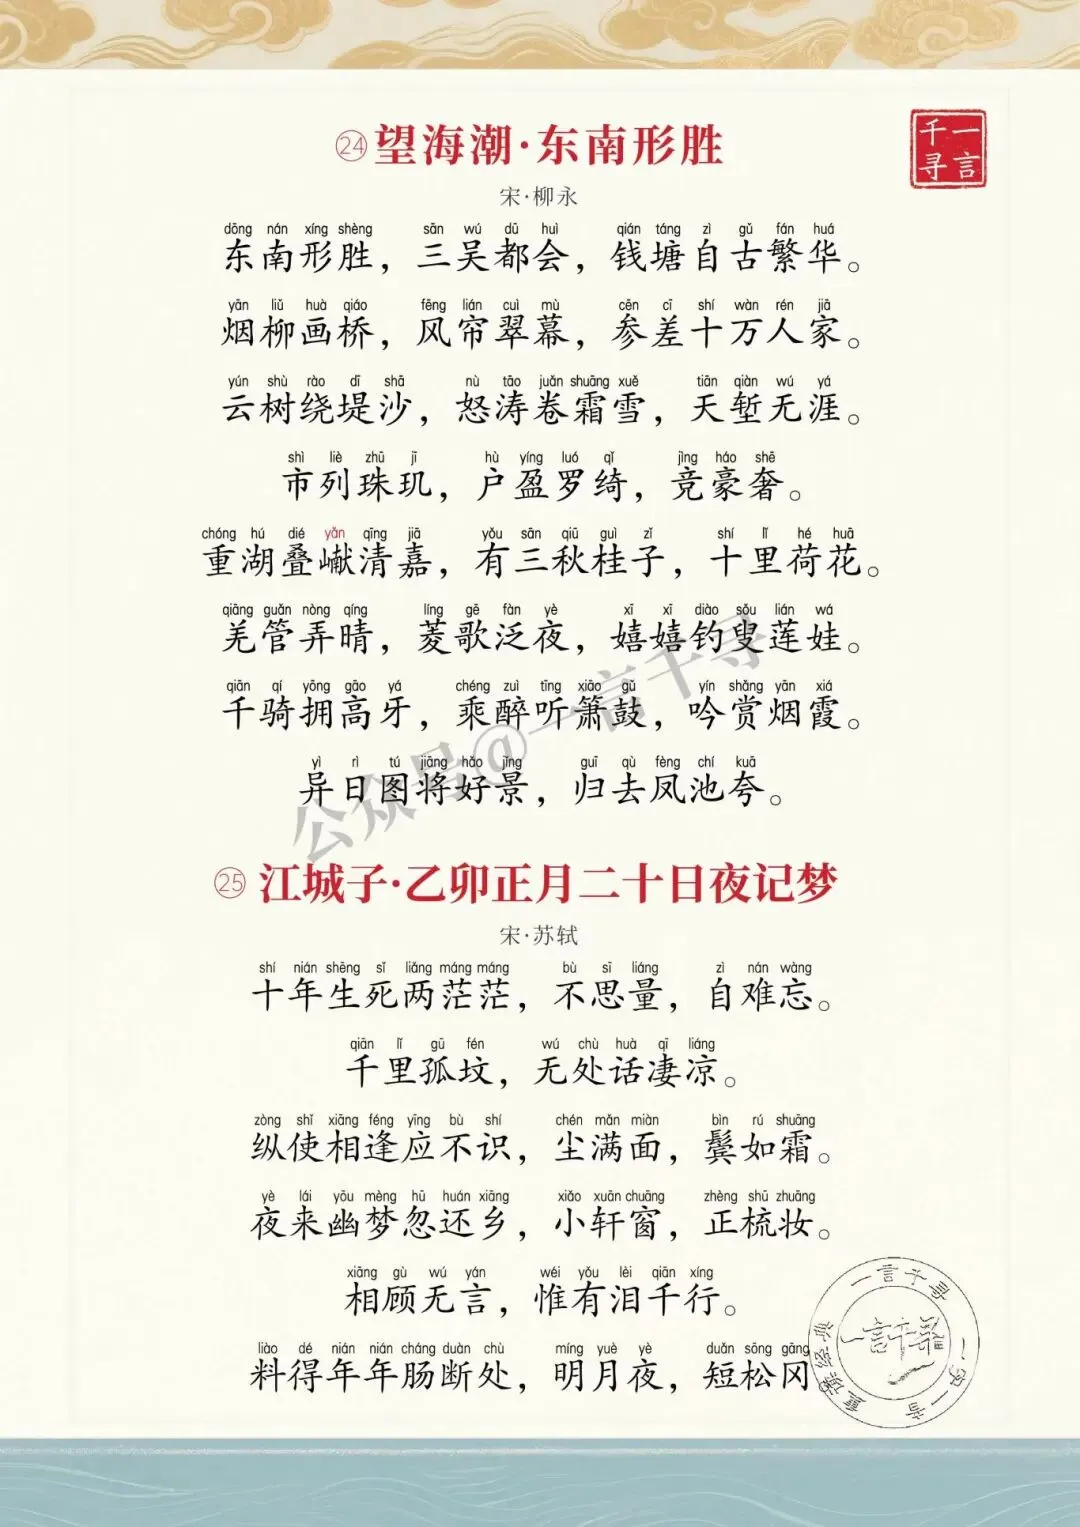 ㉔望海潮·东南形胜
一言
千寻
宋·柳永
dōng nán xíng shèng sān wú dū huì qián táng zì gǔ fán huá
东南形胜，三吴都会，钱塘自古繁华。
yān liǔ huà qiáo fēng lián cuì mù cēn cī shí wàn rén jiā
烟柳画桥，风帘翠幕，参差十万人家。
yún shù rào dī shā nù tāo juǎn shuāng xuě tiān qiàn wú yá
云树绕堤沙，怒涛卷霜雪，天堑无涯。
shì liè zhū jī hù yíng luó qǐ jìng háo shē
市列珠玑，户盈罗绮，竞豪奢。
chóng hú dié yǎn qīng jiā yǒu sān qiū guì zǐ shí lǐ hé huā
重湖叠巘清嘉，有三秋桂子，十里荷花。
qiāng guǎn nòng qíng líng gē fàn yè xī xī diào sǒu lián wá
羌管弄晴，菱歌泛夜，嬉嬉钓叟莲娃。
qiān qí yōng gāo yá chéng zuì tīng xiāo gǔ yín shǎng yān xiá
千骑拥高牙，乘醉听箫鼓，吟赏烟霞。
yì rì tú jiāng hǎo jǐng guī qù fèng chí kuā
异日图将好景，归去凤池夸。
公众号@一言千寻
㉕江城子·乙卯正月二十日夜记梦
宋·苏轼
shí nián shēng sǐ liǎng máng máng bù sī liáng zì nán wàng
十年生死两茫茫，不思量，自难忘。
qiān lǐ gū fén wú chù huà qī liáng
千里孤坟，无处话凄凉。
zòng shǐ xiāng féng yīng bù shí chén mǎn miàn bìn rú shuāng
纵使相逢应不识，尘满面，鬓如霜。
yè lái yōu mèng hū huán xiāng xiǎo xuān chuāng zhèng shū zhuāng
夜来幽梦忽还乡，小轩窗，正梳妆。
xiāng gù wú yán wéi yǒu lèi qiān xíng
相顾无言，惟有泪千行。
liào dé nián nián cháng duàn chù míng yuè yè duǎn sōng gāng
料得年年肠断处，明月夜，短松冈
一言千寻
一字一音
重读经典
一言千寻